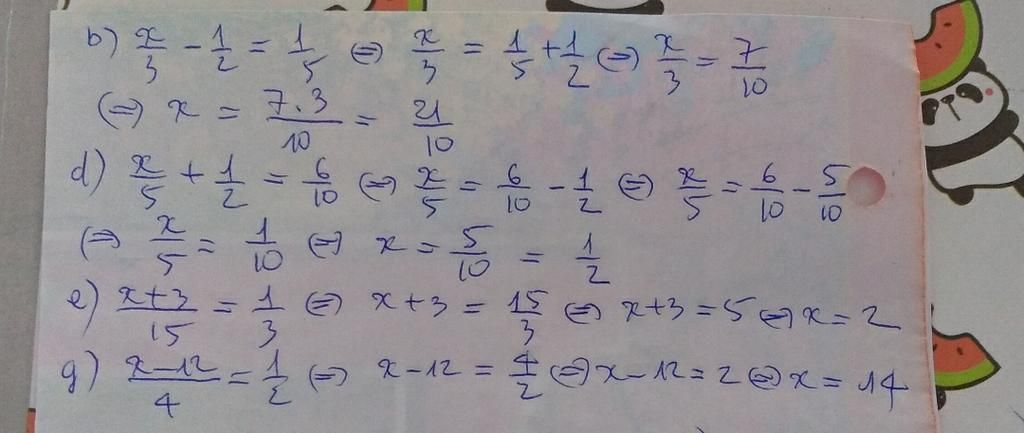 b) x/3 - 1/2 = 1/5 ⇔ x/3 = 1/5 + 1/2 ⇔ x/3 = 7/10
⇔ x = 7.3/10 = 21/10
d) x/5 + 1/2 = 6/10 ⇔ x/5 = 6/10 - 1/2 ⇔ x/5 = 6/10 - 5/10
⇔ x/5 = 1/10 ⇔ x = 5/10 = 1/2
e) x+3/15 = 1/3 ⇔ x+3 = 15/3 ⇔ x+3 = 5 ⇔ x = 2
g) x-12/4 = 1/2 ⇔ x-12 = 4/2 ⇔ x-12 = 2 ⇔ x = 14